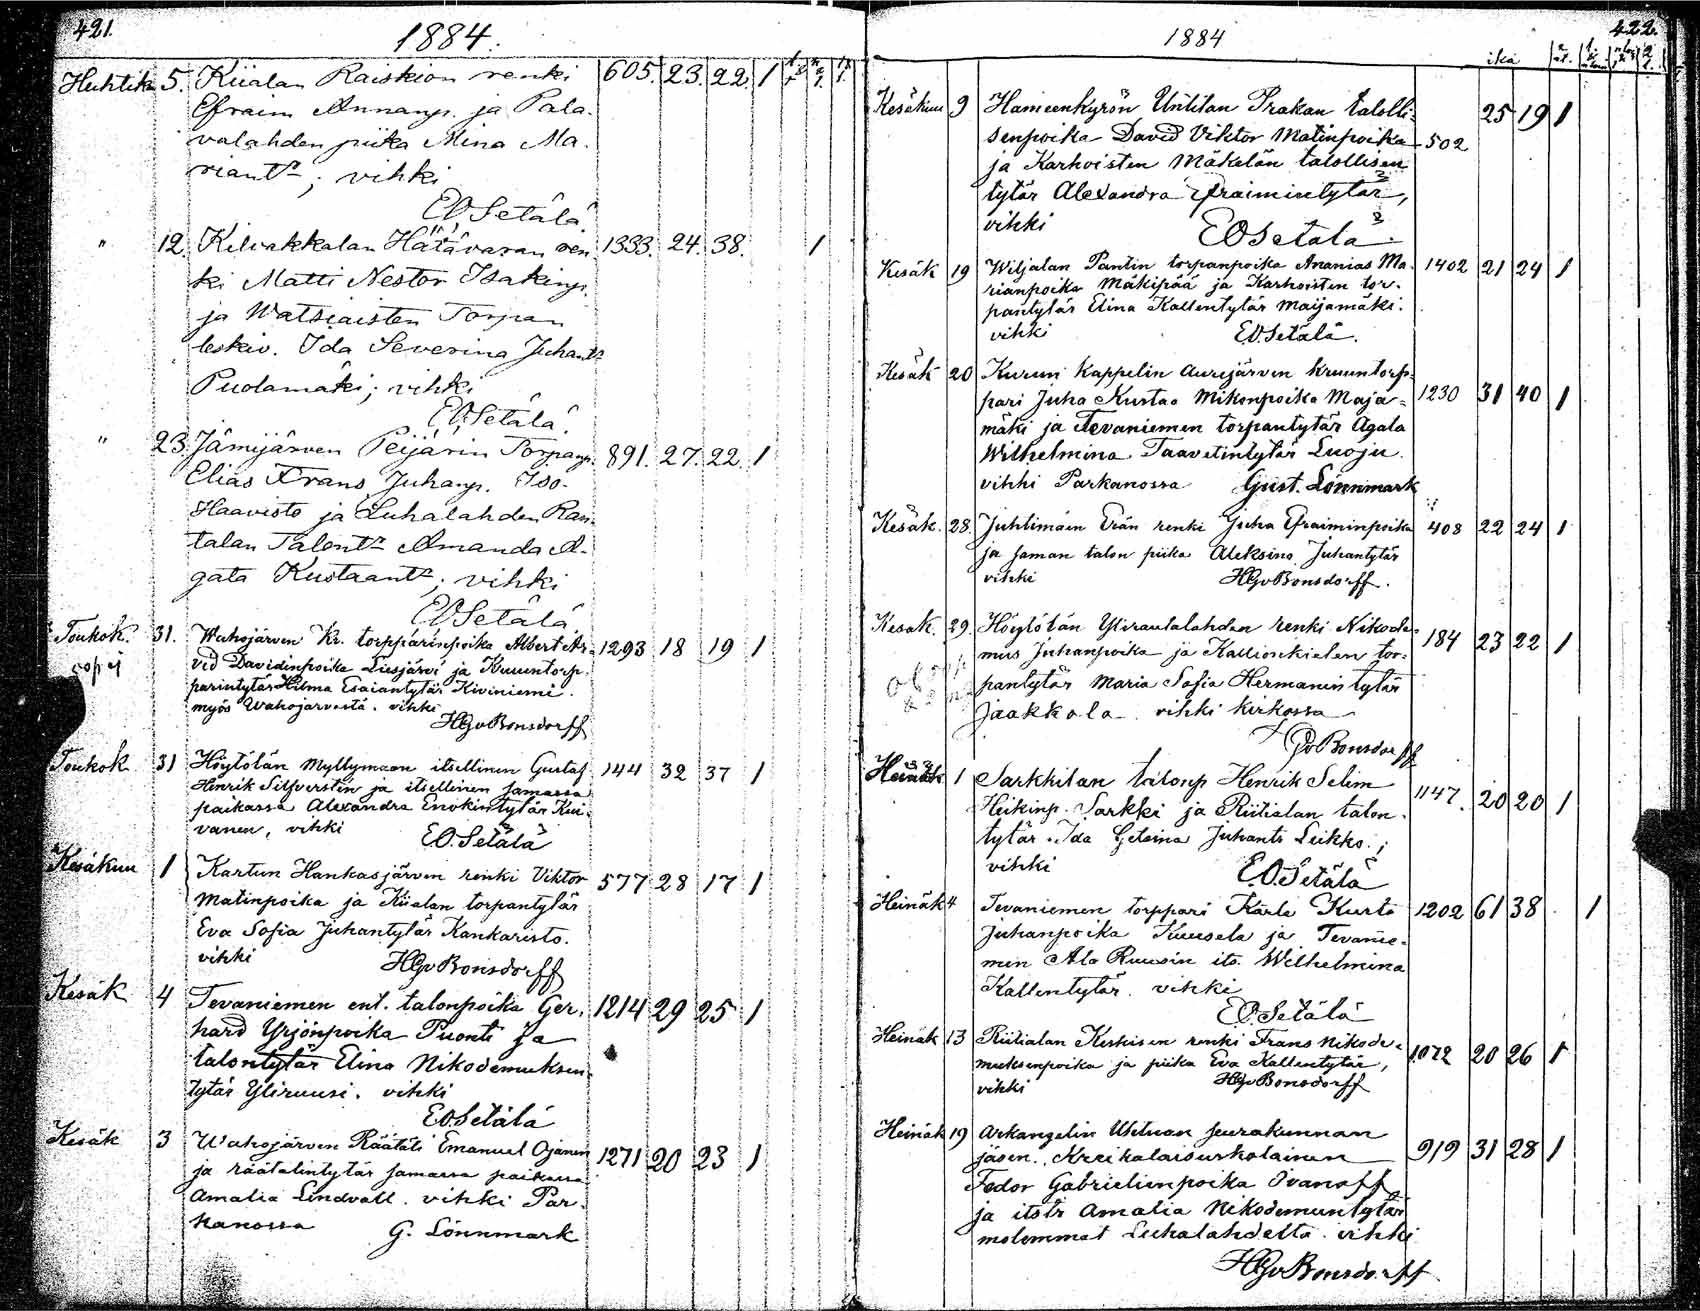 421.
1884.
Huhtik. 5. Kiialan Raiskion renki 605. 23. 22. 1
Efraim Annanp. ja Pala-
valahden piika Mina Ma-
riantr; vihki
EOSetälä.
" 12. Kilvakkalan Hätävaran ren- 1333. 24. 38. 1
ki Matti Nestor Isakinp.
ja Watsiaisten Torpan
leskiv. Ida Severina Juhantr
Puolamäki; vihki
EOSetälä.
" 23. Jämijärven Peijärin Torpanp. 891. 27. 22. 1
Elias Frans Juhanp. Iso-
Haavisto ja Luhalahden Ran-
talan Talontr Amanda A-
gata Kustaantr; vihki
EOSetälä.
Toukok. 31. Wahojärven Kr. torpparinpoika Albert Ar- 1293 18 19 1
vid Davidinpoika Liesjärvi ja Kruuntorp-
parintytär Hilma Esaiantytär Kiviniemi
myös Wahojärvestä. vihki
HGvBonsdorff
Toukok 31 Höytölän Myllymaan itsellinen Gustaf 144 32 37 1
Henrik Silfversten ja itsellinen samassa
paikassa Alexandra Enokintytär Kui-
vanen, vihki
EO.Setälä
Kesäkuu 1 Kartun Hankasjärven renki Viktor 577 28 17 1
Matinpoika ja Kiialan torpantytär
Eva Sofia Juhantytär Kankaristo.
vihki HGvBonsdorff
Kesäk 4 Tevaniemen ent. talonpoika Ger- 1214 29 25 1
hard Yrjönpoika Puonti ja
talontytär Elina Nikodemuksen-
tytär Yliruusi. vihki
EOSetälä
Kesäk 3 Wahojärven Räätäli Emanuel Ojanen 1271 20 23 1
ja räätälintytär samassa paikassa
Amalia Lindvall. vihki Par-
kanossa G. Lönnmark
422.
1884
ikä
Kesäkuu 9 Hämeenkyrön Untilan Prakan talolli- 25 19 1
senpoika David Viktor Matinpoika 502
ja Karhoisten Mäkelän talollisen
tytär Alexandra Efraimintytär,
vihki EOSetälä
Kesäk 19 Wiljalan Pantin torpanpoika Ananias Ma- 1402 21 24 1
rianpoika Mäkipää ja Karhoisten tor-
pantytär Elina Kallentytär Maijamäki.
vihki EO.Setälä.
Kesäk 20 Kurun kappelin Aurejärven kruuntorp-
pari Juha Kustaa Mikonpoika Maja- 1230 31 40 1
mäki ja Tevaniemen torpantytär Agata
Wilhelmina Taavetintytär Luoju.
vihki Parkanossa Gust. Lönnmark
Kesäk. 28 Juhtimäen Erän renki Juha Efraiminpoika 408 22 24 1
ja saman talon piika Aleksina Juhantytär
vihki HGvBonsdorff.
Kesäk. 29 Höytölän Yliraulalahden renki Nikode- 184 23 22 1
mus Juhanpoika ja Kallionkielen tor-
pantytär Maria Sofia Hermanintytär
Jaakkola. vihki kirkossa
GvBonsdorff
Heinäk 1 Sarkkilan talonp Henrik Selim 1147. 20 20 1
Heikinp. Sarkki ja Riitialan talon-
tytär Ida Juhantr Leikko.;
vihki E.O.Setälä
Heinäk 4 Tevaniemen torppari Kaarle Kusto 1202 61 38 1
Juhanpoika Kuusela ja Tevanie-
men Ala Ruusin its. Wilhelmina
Kallentytär. vihki
EO.Setälä
Heinäk 13 Riitialan Keskisen renki Frans Nikode- 1072 20 26 1
muksenpoika ja piika Eva Kallentytär,
vihki HGvBonsdorff
Heinäk 19 Arkangelin Uhtuan seurakunnan 919 31 28 1
jäsen, Kreikalaisuskolainen
Fedor Gabrielinpoika Ivanoff
ja itstr Amalia Nikodemuntytär
molemmat Luhalahdelta. vihki
HGvBonsdorff